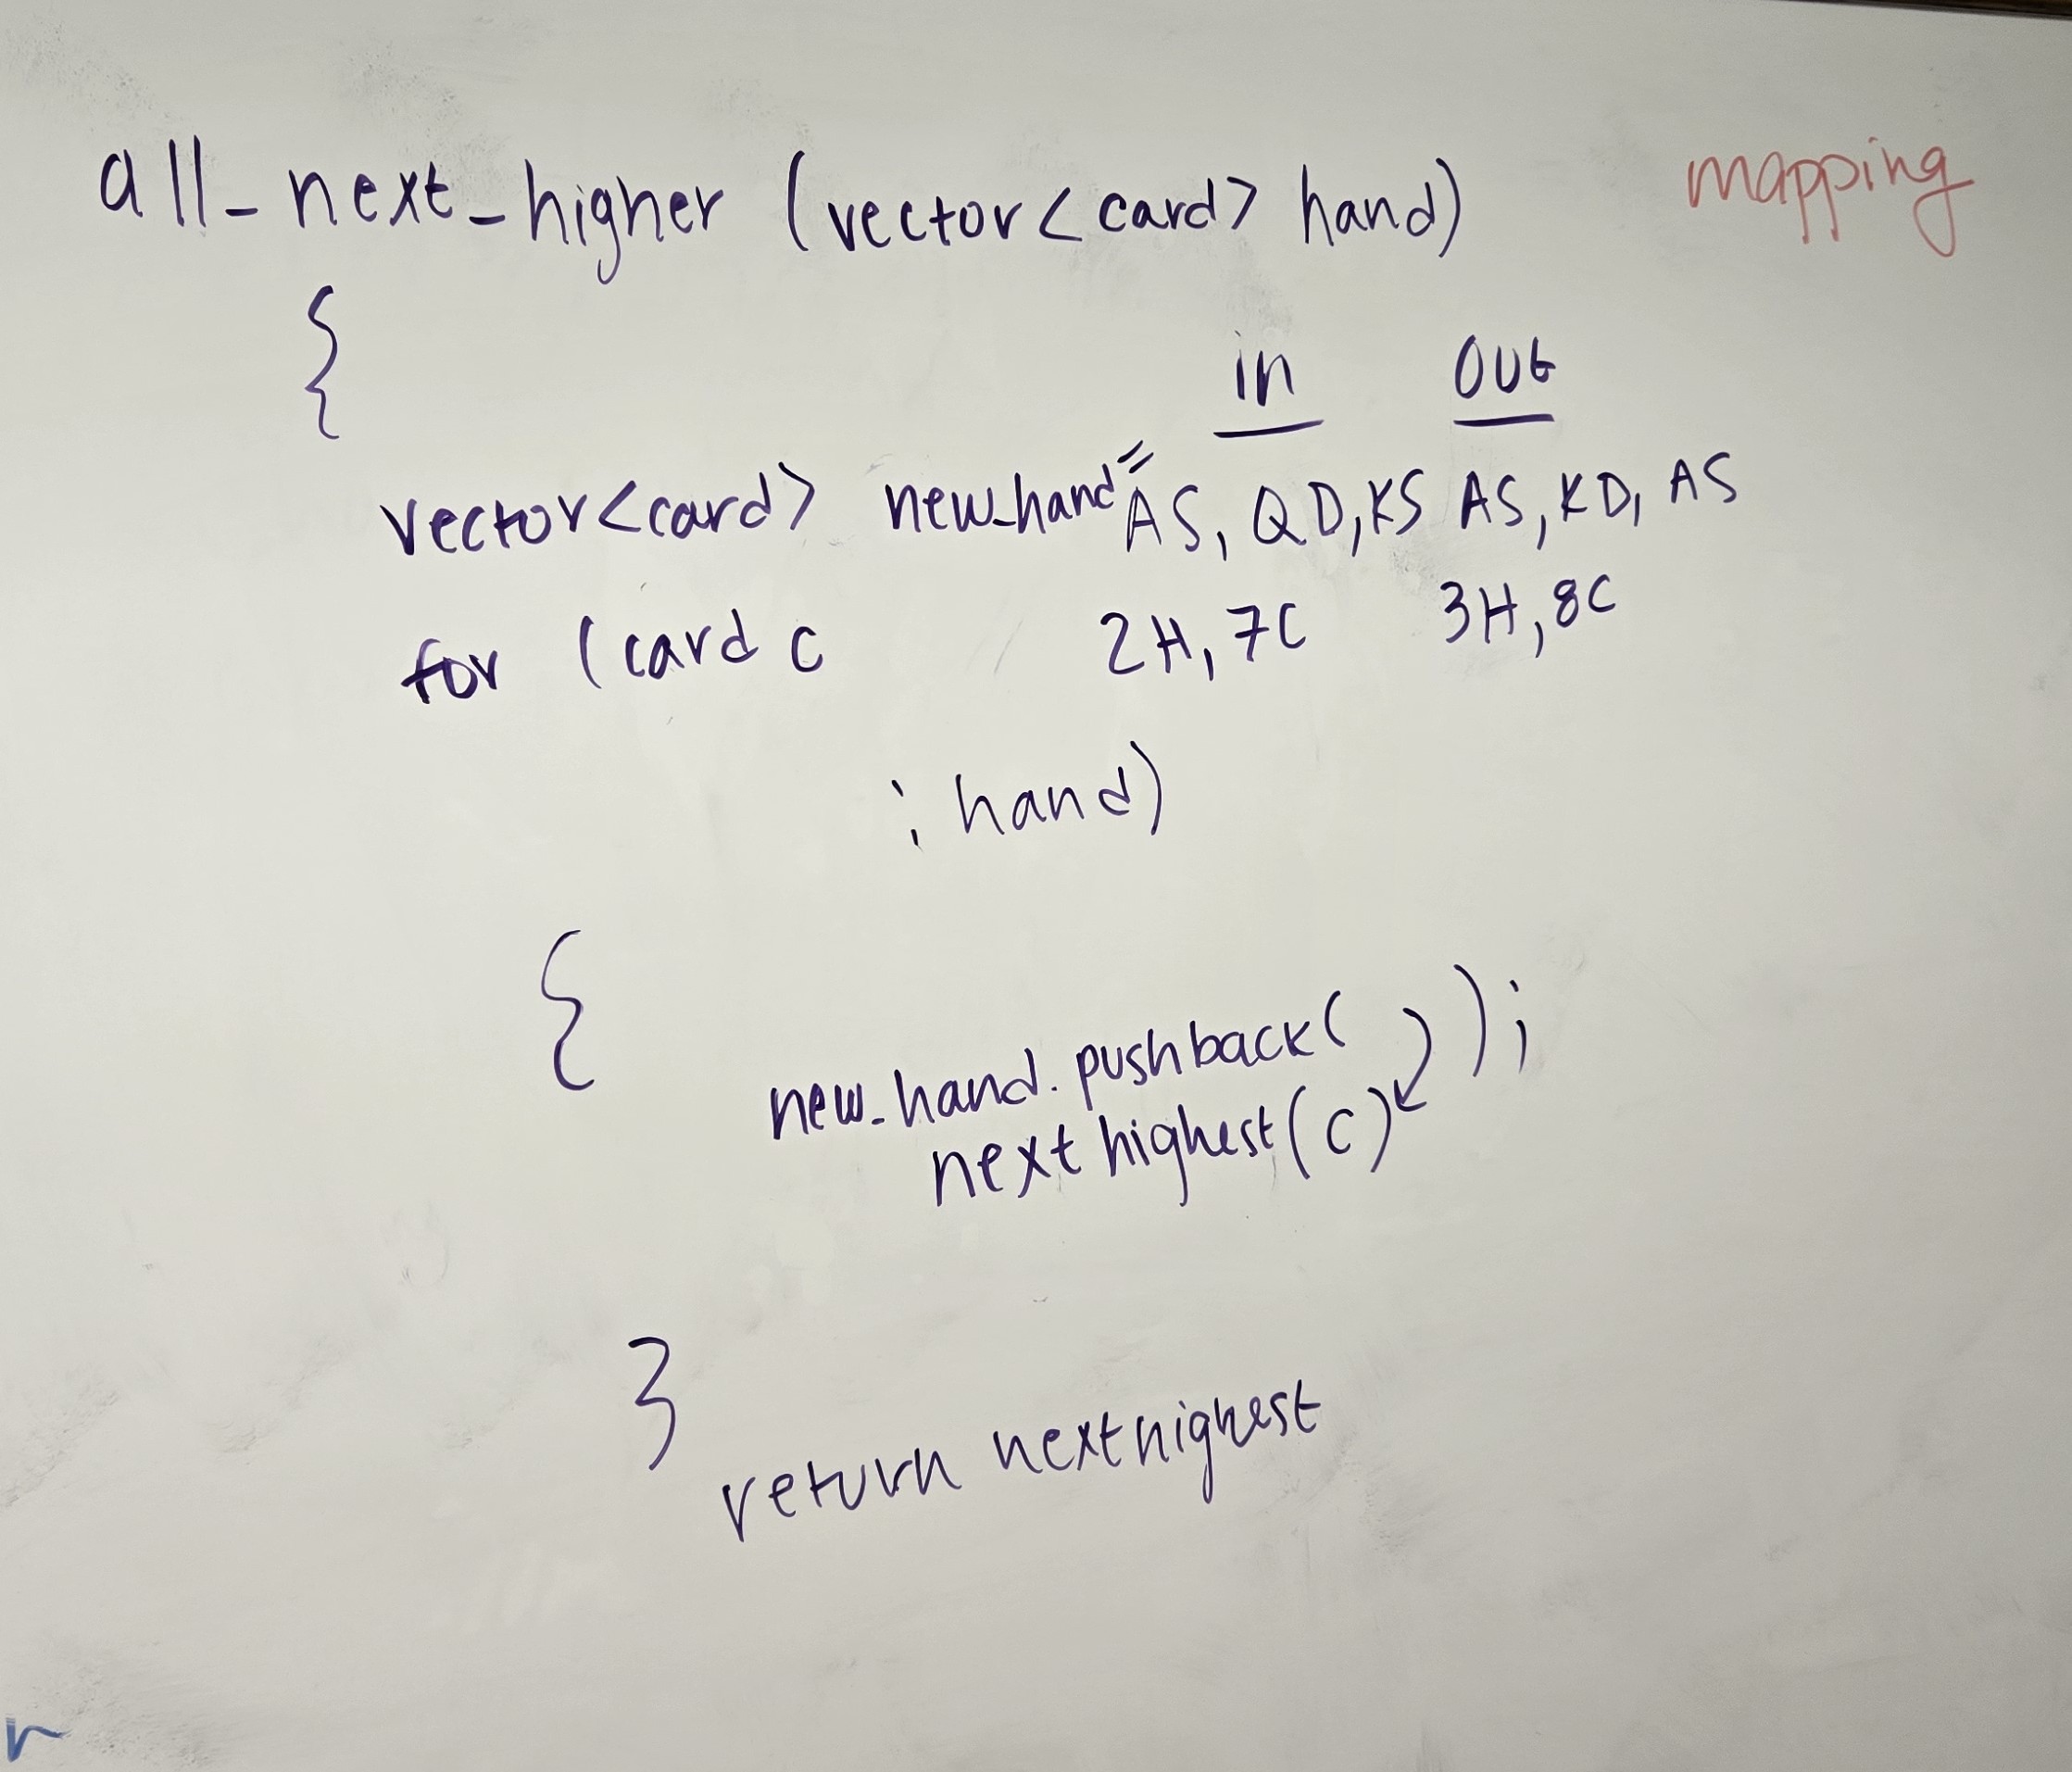 all_next_higher (vector<card> hand)
mapping
{
in out
vector<card> new_hand= AS, QD, KS AS, KD, AS
for (card c 2H, 7C 3H, 8C
: hand)
{
new_hand.pushback( );
next highest(c)
}
return nexthighest